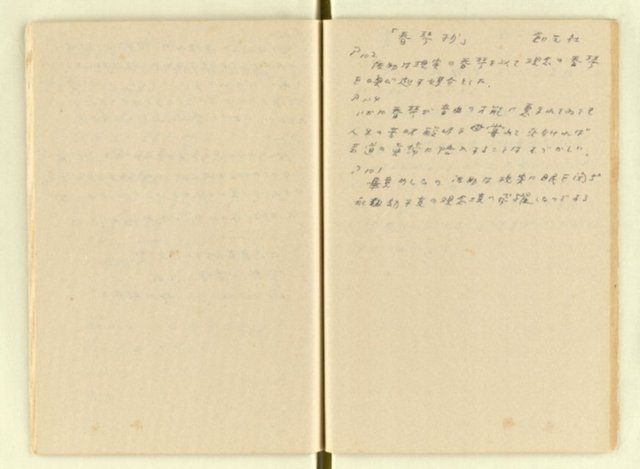 「春琴抄」 創元社
P102
佐助は現実の春琴を以て観念の春琴
を喚び起す媒介とした
P114
いかに春琴が音曲の才能に恵まれてゐても
人生の苦味酸味を嘗めて来なければ
芸道の真諦に悟入することはむづかしい。
P101
佐助は現実に眼を閉ぢ
永劫不変の観念境へ飛躍したのである